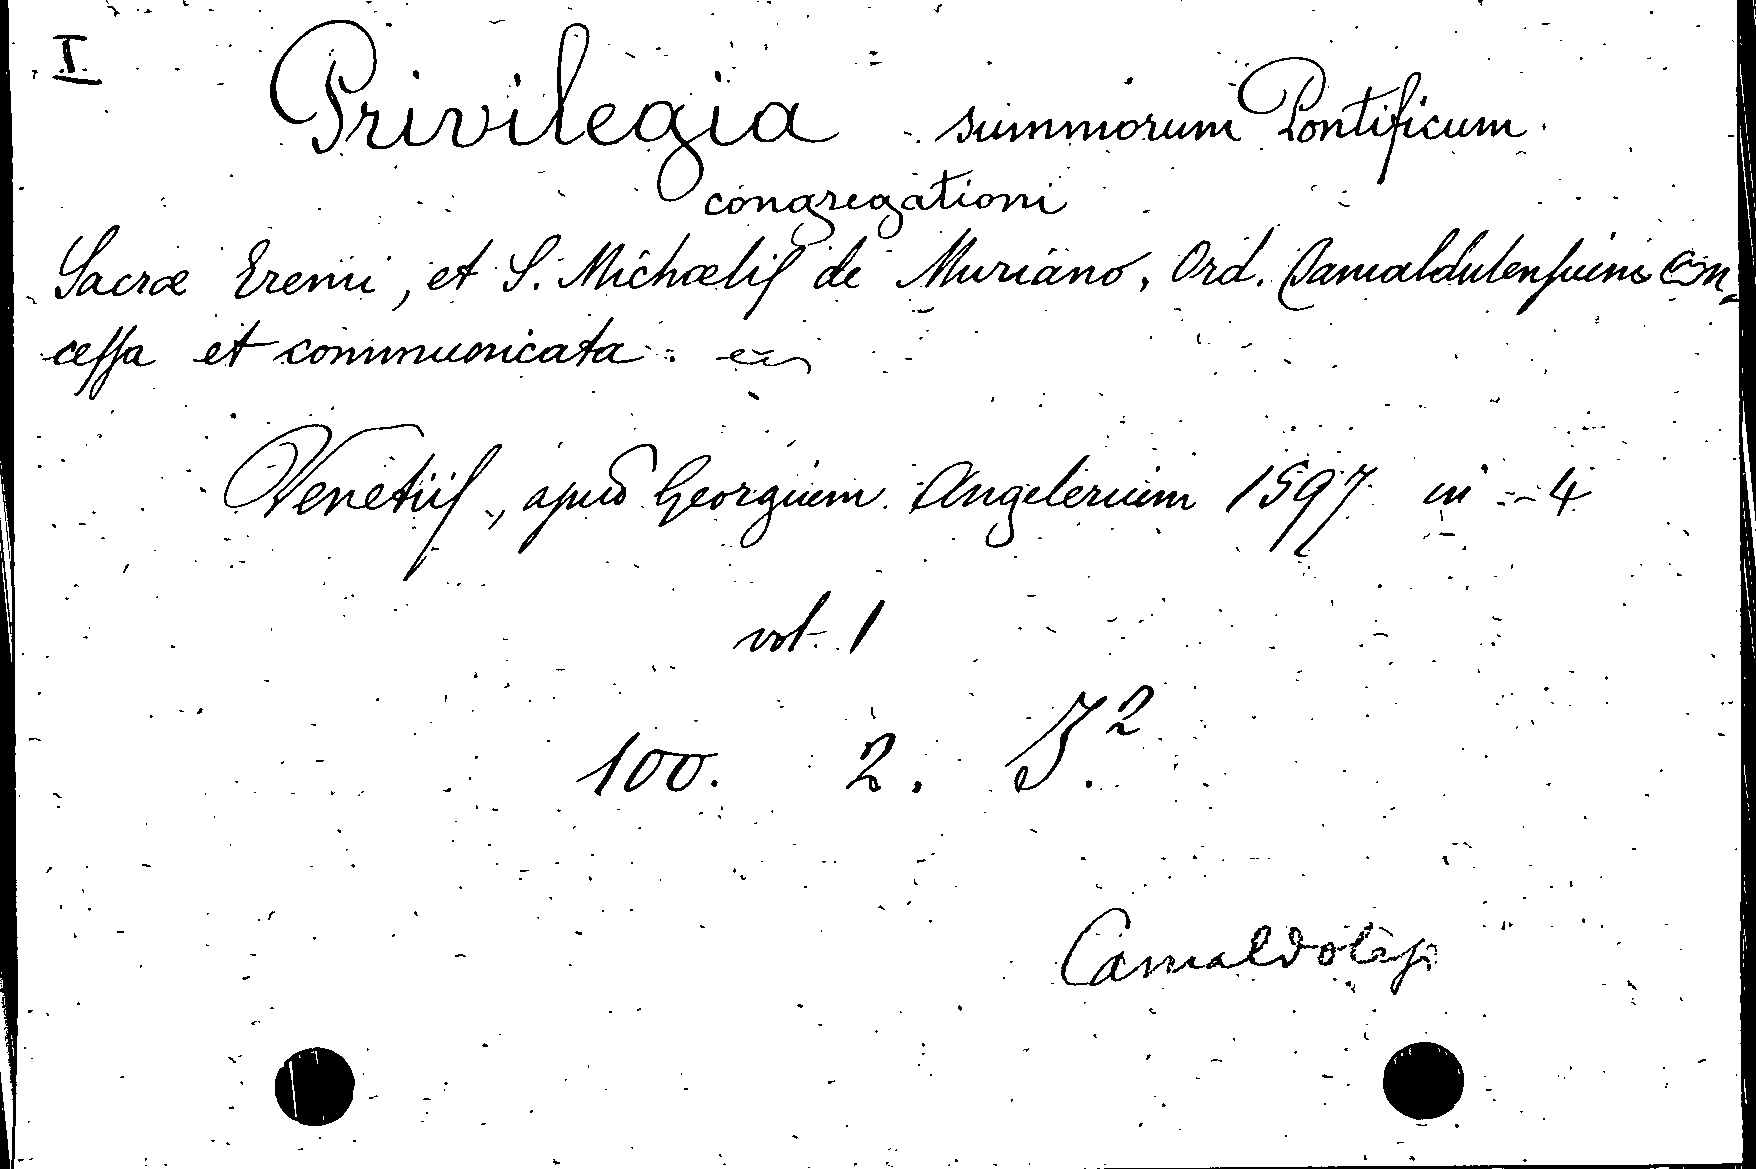 I
Privilegia summorum Pontificum
congregationi
Sacræ Eremi, et S. Michælis de Muriano, Ord. Camaldulensium con-
cessa et communicata.
Venetiis, apud Georgium Angelerium 1597 in - 4
vol. 1
100. 2. J.2
Camaldolesi